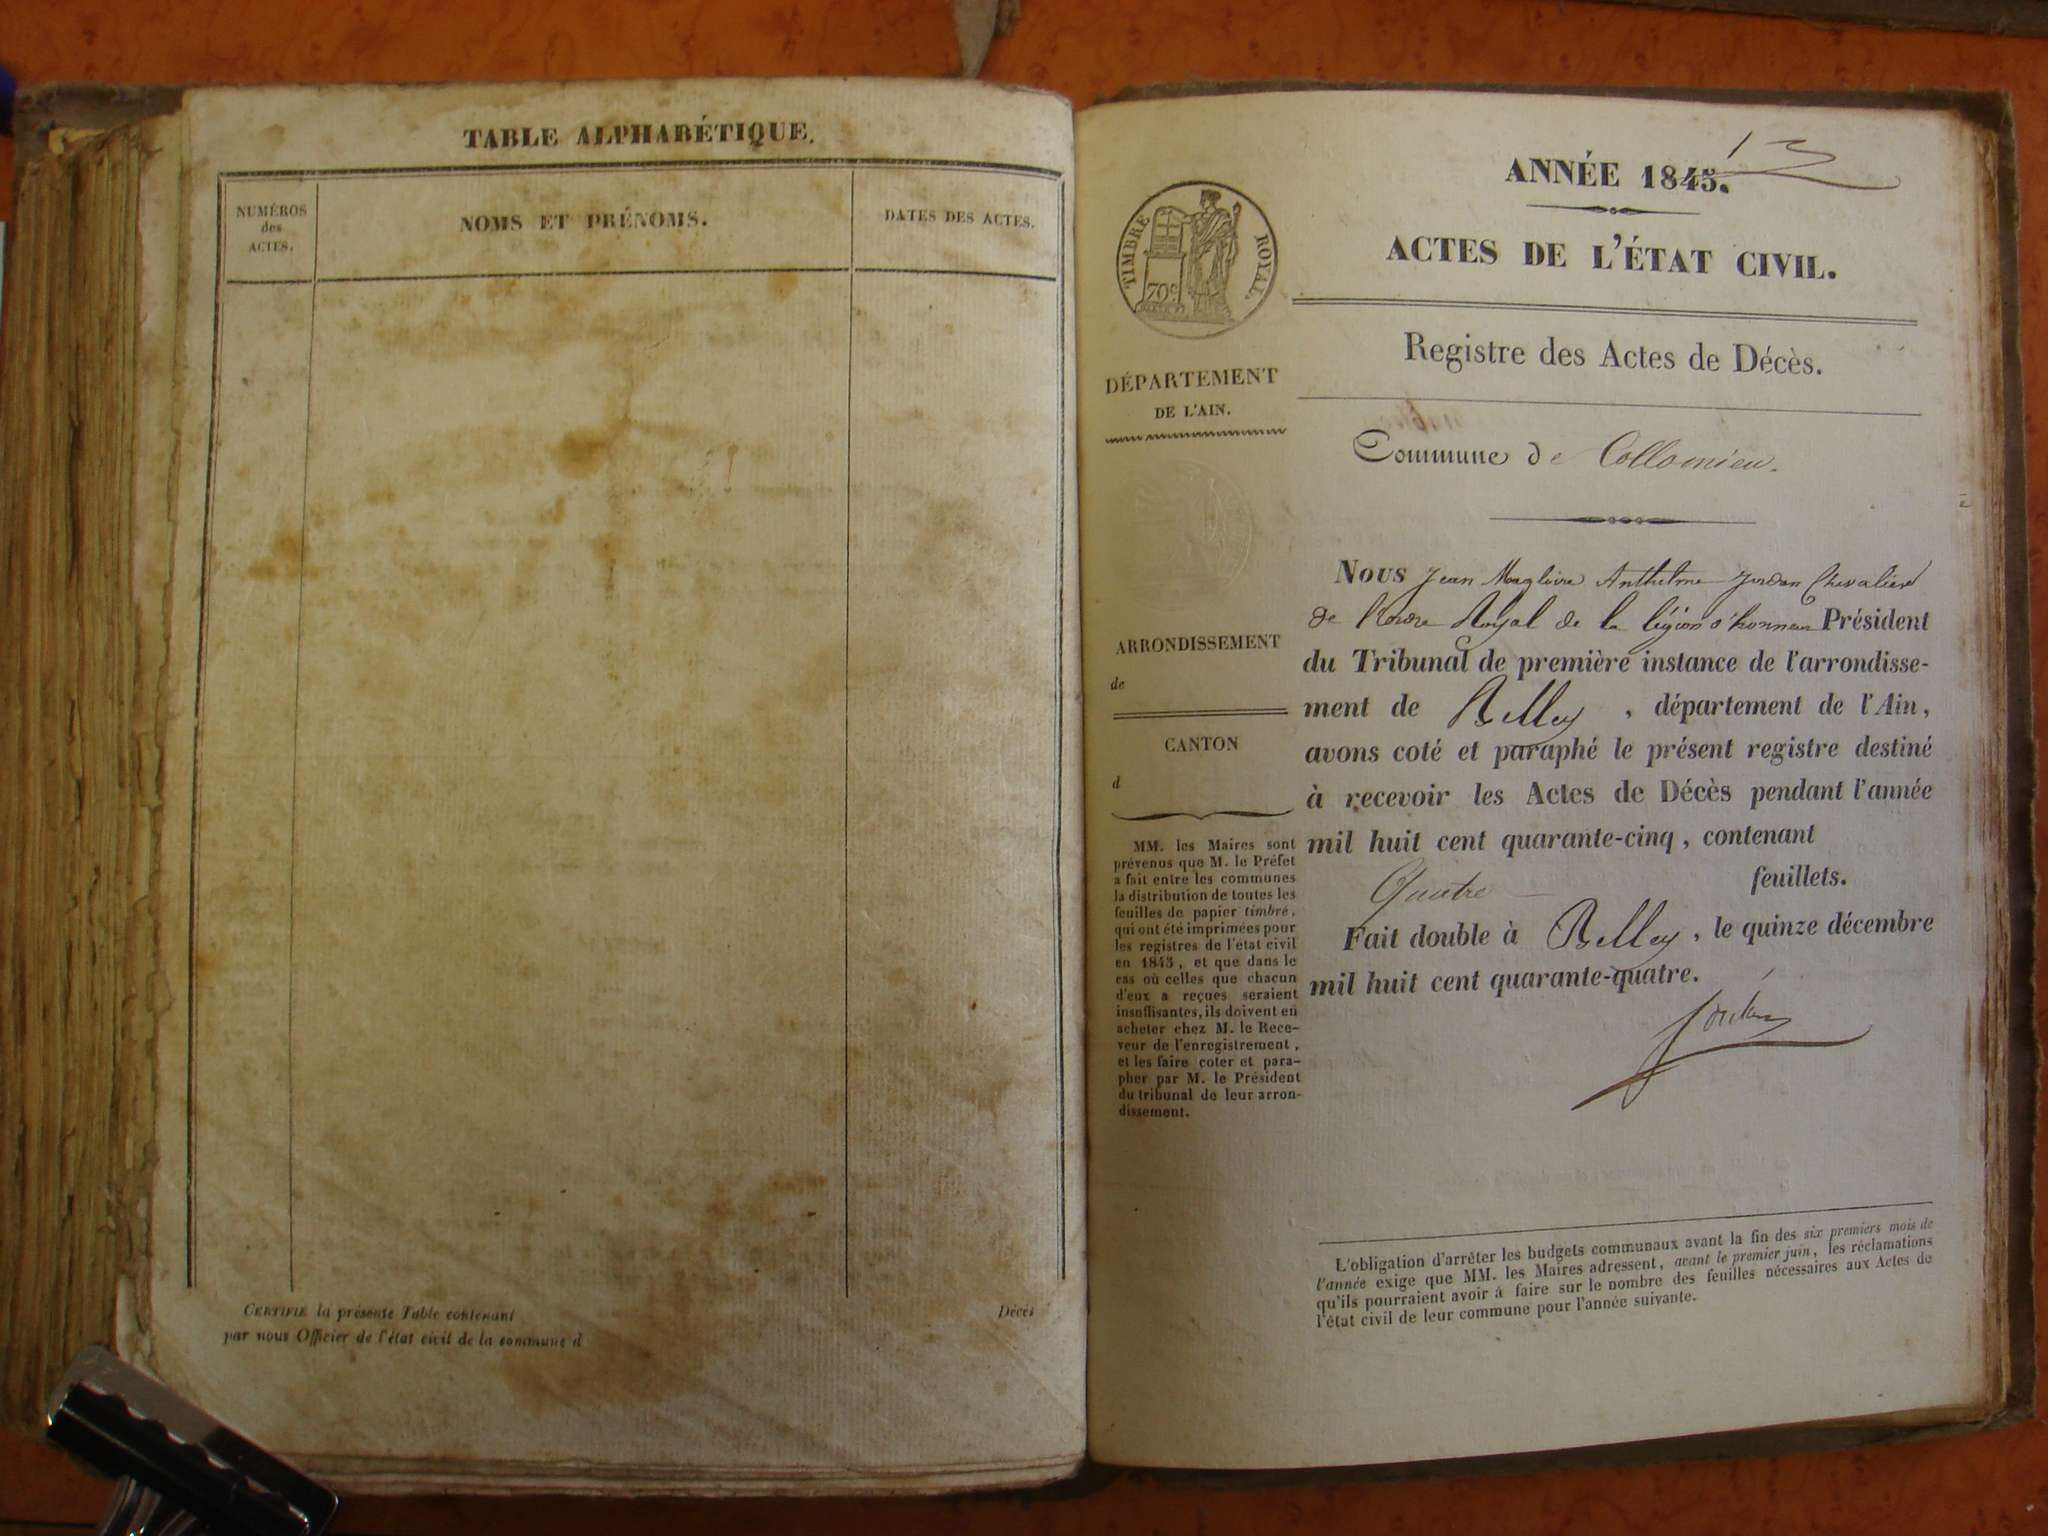 TABLE ALPHABÉTIQUE.
NUMÉROS
des
ACTES.
NOMS ET PRÉNOMS.
DATES DES ACTES.
CERTIFIE la présente Table contenant
Décès
par nous Officier de l'état civil de la commune d
ANNÉE 1845.
ACTES DE L'ÉTAT CIVIL.
Registre des Actes de Décès.
TIMBRE ROYAL.
70c
DÉPARTEMENT
DE L'AIN.
Commune de Collomieu.
ARRONDISSEMENT
de
CANTON
d
MM. les Maires sont
prévenus que M. le Préfet
a fait entre les communes
la distribution de toutes les
feuilles de papier timbré,
qui ont été imprimées pour
les registres de l'état civil
en 1845, et que dans le
cas où celles que chacun
d'eux a reçues seraient
insuffisantes, ils doivent en
acheter chez M. le Rece-
veur de l'enregistrement,
et les faire coter et para-
pher par M. le Président
du tribunal de leur arron-
dissement.
Nous Jean Magloire Anthelme Jordan Chevalier
de l'ordre Royal de la légion d'honneur Président
du Tribunal de première instance de l'arrondisse-
ment de Belley, département de l'Ain,
avons coté et paraphé le présent registre destiné
à recevoir les Actes de Décès pendant l'année
mil huit cent quarante-cinq, contenant
Quatre feuillets.
Fait double à Belley, le quinze décembre
mil huit cent quarante-quatre.
Jordan
L'obligation d'arrêter les budgets communaux avant la fin des six premiers mois de
l'année exige que MM. les Maires adressent, avant le premier juin, les réclamations
qu'ils pourraient avoir à faire sur le nombre des feuilles nécessaires aux Actes de
l'état civil de leur commune pour l'année suivante.